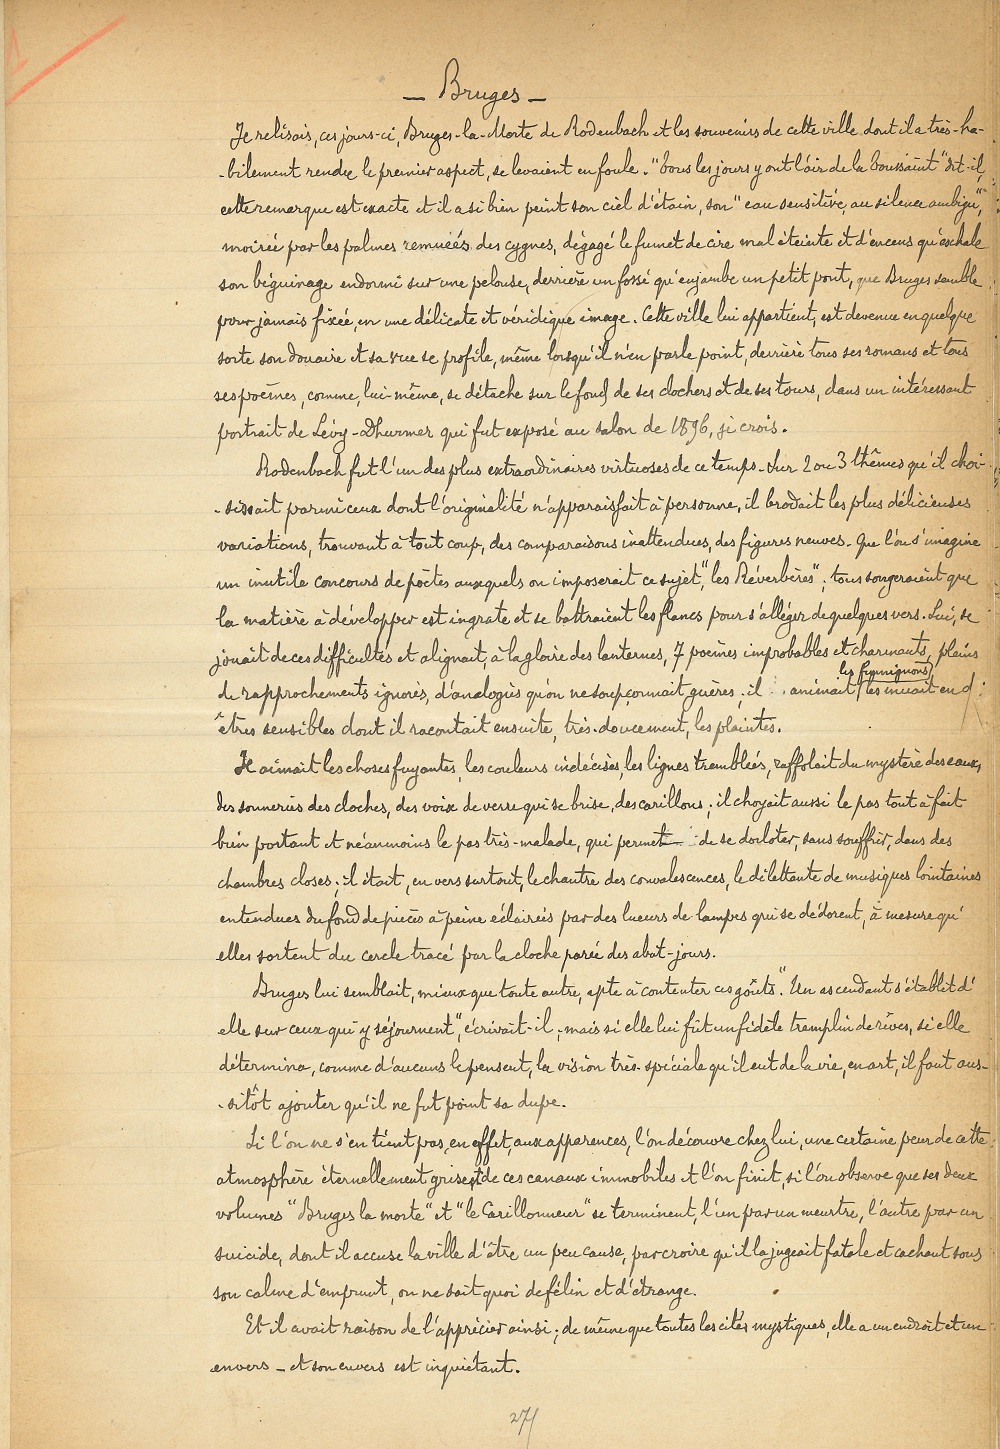 — Bruges —
Je relisais, ces jours-ci, Bruges-la-Morte de Rodenbach et les souvenirs de cette ville dont il a très-ha-
-bilement rendu le premier aspect, se levaient en foule. "Tous les jours y ont l'air de la Toussaint" dit-il,
cette remarque est exacte et il a si bien peint son ciel d'étain, son "eau sensitive, au silence ambigu",
moirée par les palmes remuées des cygnes, dégagé le fumet de cire mal éteinte et d'encens qu'exhale
son béguinage endormi sur une pelouse, derrière un fossé qu'enjambe un petit pont, que Bruges semble
pour jamais fixée, en une délicate et véridique image. Cette ville lui appartient, est devenue en quelque
sorte son douaire et sa vue se profile, même lorsqu'il n'en parle point, derrière tous ses romans et tous
ses poèmes, comme, lui-même, se détache sur le fond de ses clochers et de ses tours, dans un intéressant
portrait de Lévy-Dhurmer qui fut exposé au salon de 1896, je crois.
Rodenbach fut l'un des plus extraordinaires virtuoses de ce temps. Sur 2 ou 3 thêmes qu'il choi-
-sissait parmi ceux dont l'originalité n'apparaissait à personne, il brodait les plus délicieuses
variations, trouvant à tout coup, des comparaisons inattendues, des figures neuves. Que l'on s'imagine
un inutile concours de poètes auxquels on imposerait ce sujet, "les Réverbères"; tous songeraient que
la matière à développer est ingrate et se battraient les flancs pour s'alléger de quelques vers. Lui, se
jouait de ces difficultés et alignait, à la gloire des lanternes, 7 poèmes improbables et charmants, pleins
de rapprochements ignorés, d'analogies qu'on ne soupçonnait guères; il animait les lumignons, les muait en d'
êtres sensibles dont il racontait ensuite, très-doucement, les plaintes.
Il aimait les choses fuyantes, les couleurs indécises, les lignes tremblées, raffolait du mystère des eaux,
des sonneries des cloches, des voix de verre qui se brise, des carillons; il choyait aussi le pas tout à fait
bien portant et néanmoins le pas très-malade, qui permet de se dorloter, sans souffrir, dans des
chambres closes; il était, en vers surtout, le chantre des convalescences, le dilettante de musiques lointaines
entendues du fond de pièces à peine éclairées par des lueurs de lampes qui se dédorent, à mesure qu'
elles sortent du cercle tracé par la cloche parée des abat-jours.
Bruges lui semblait, mieux que toute autre, apte à contenter ces goûts. "Un ascendant s'établit d'
elle sur ceux qui y séjournent", écrivait-il; mais si elle lui fût un fidèle tremplin de rêves, si elle
détermina, comme d'aucuns le pensent, la vision très-spéciale qu'il eut de la vie, en art, il faut aus-
-sitôt ajouter qu'il ne fut point sa dupe.
Si l'on ne s'en tient pas, en effet, aux apparences, l'on découvre chez lui, une certaine peur de cette
atmosphère éternellement grise et de ces canaux immobiles et l'on finit, si l'on observe que ses deux
volumes "Bruges la morte" et "le Carillonneur" se terminent, l'un par un meurtre, l'autre par un
suicide, dont il accuse la ville d'être un peu cause, par croire qu'il la jugeait fatale et cachant sous
son calme d'emprunt, on ne sait quoi de félin et d'étrange.
Et il avait raison de l'apprécier ainsi; de même que toutes les cités mystiques, elle a un endroit et un
envers — et son envers est inquiétant.
27